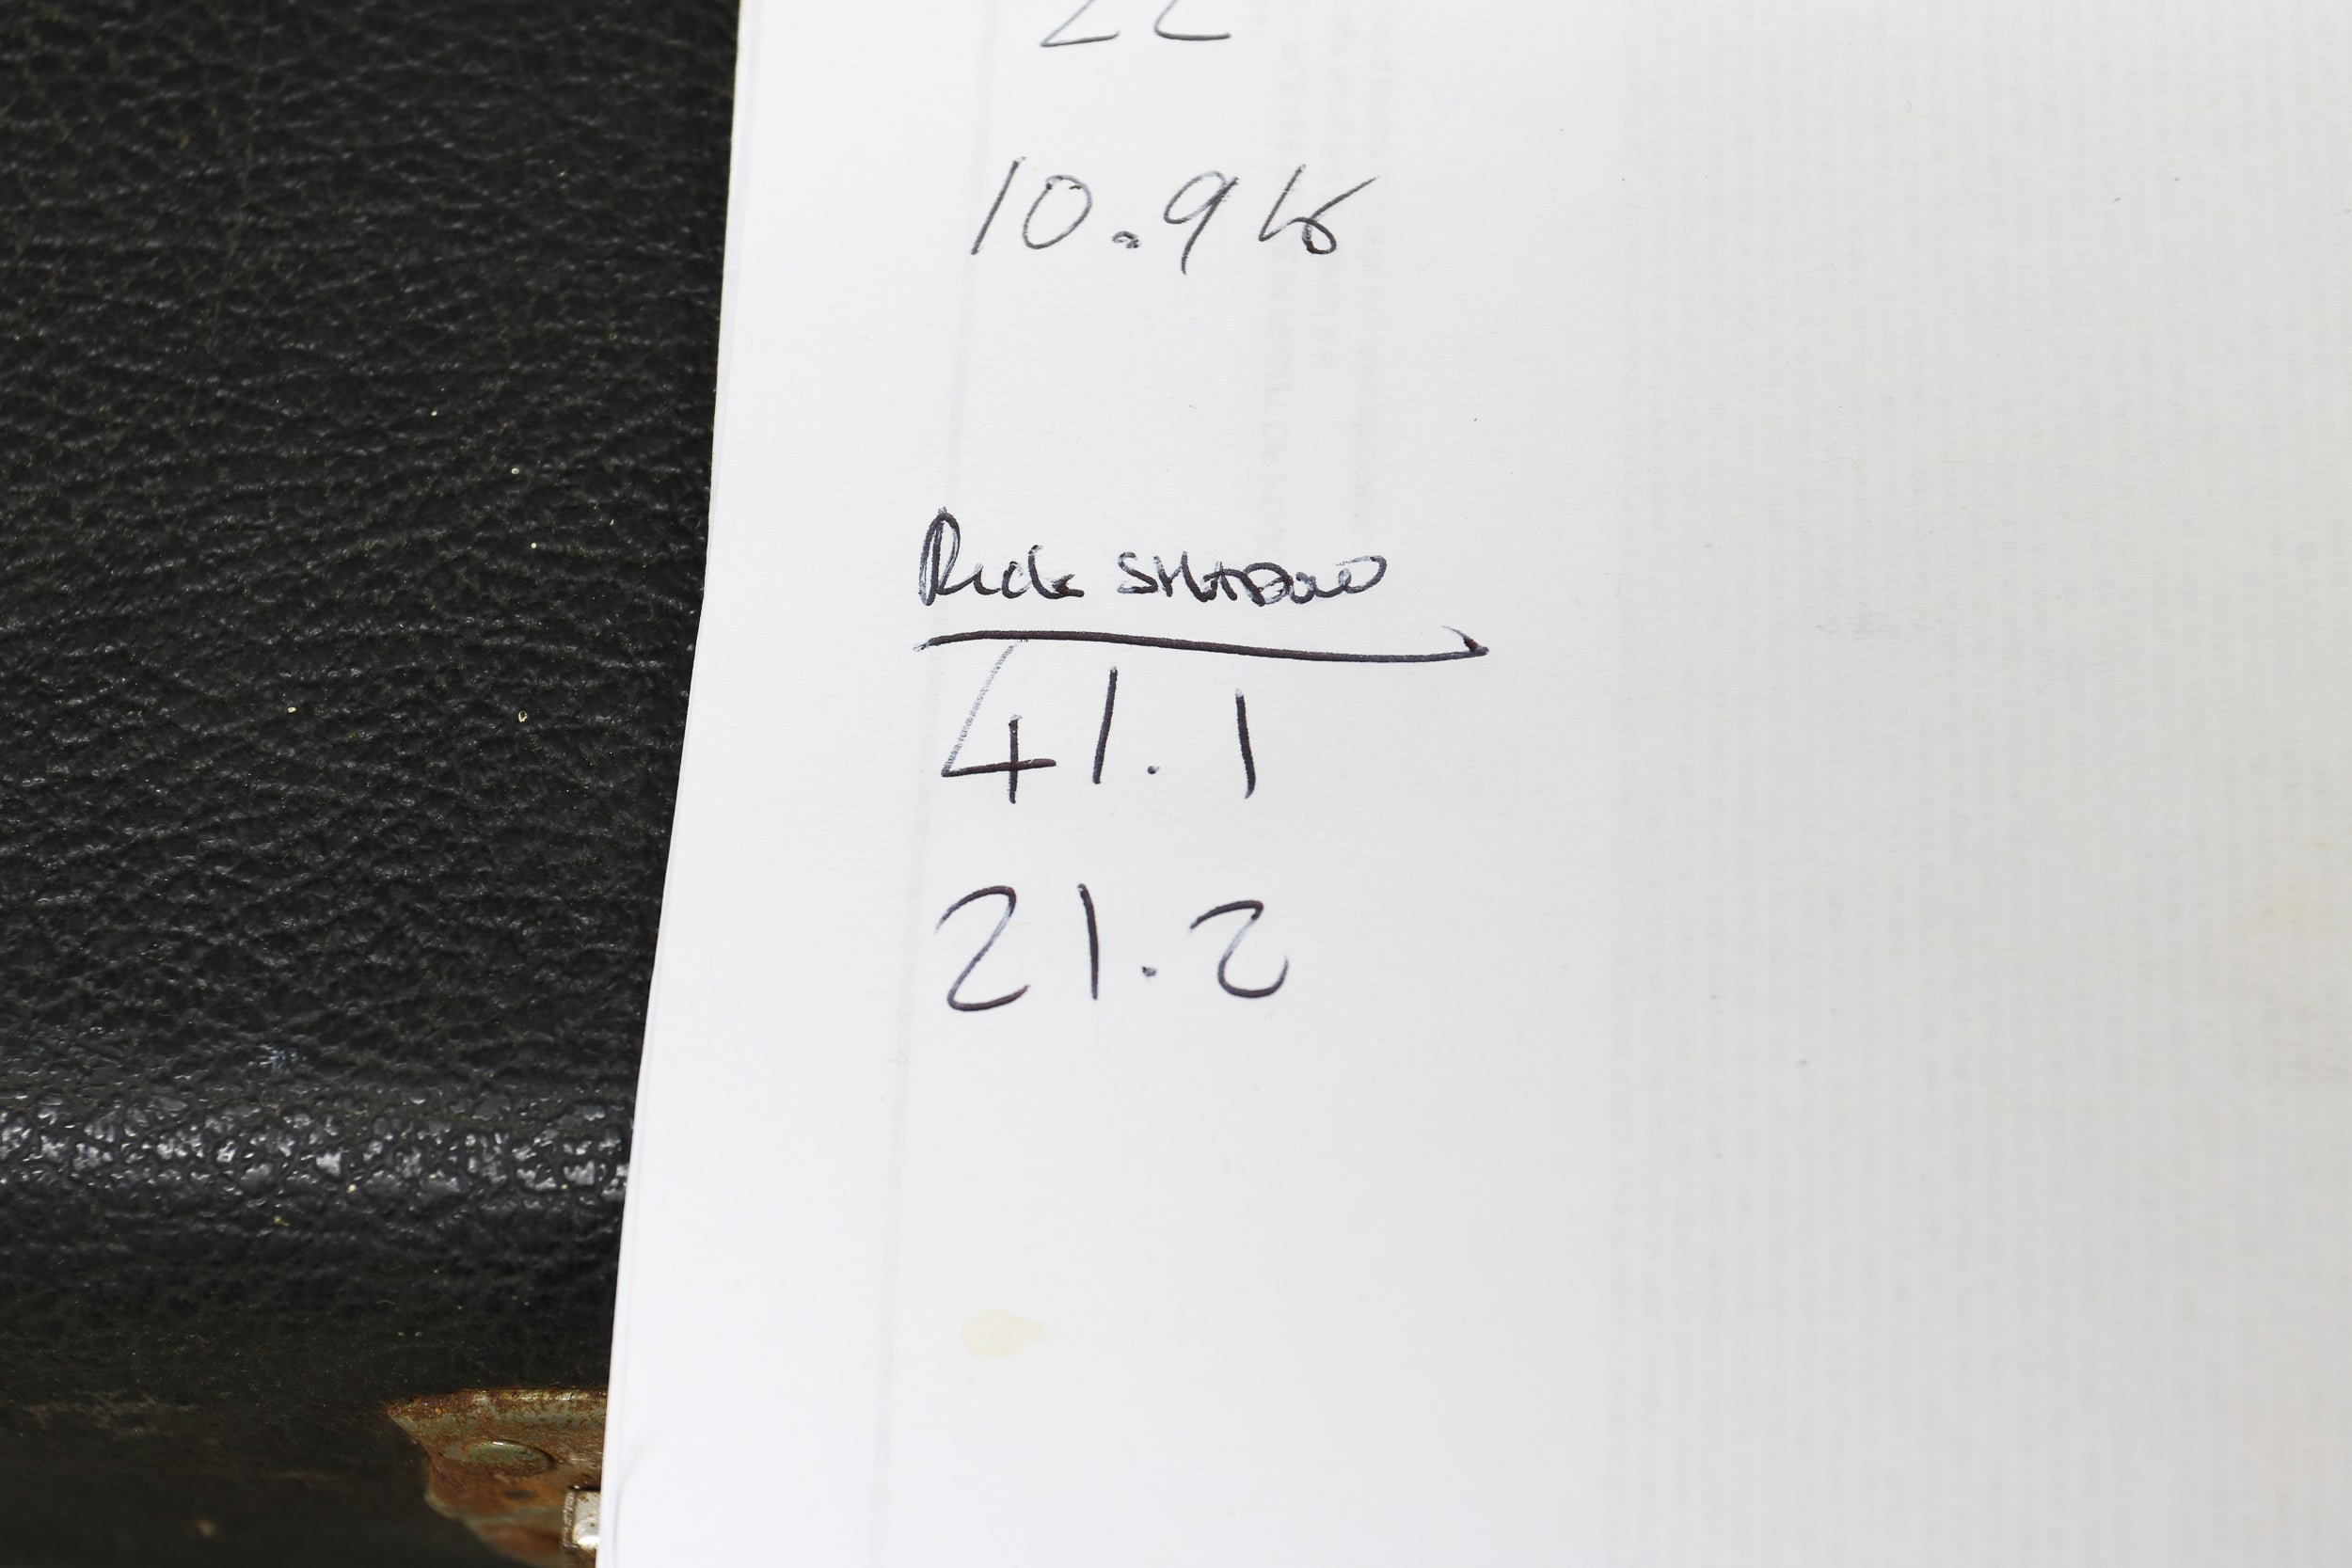 22
10.9k
Rick SHADOW
41.1
21.2